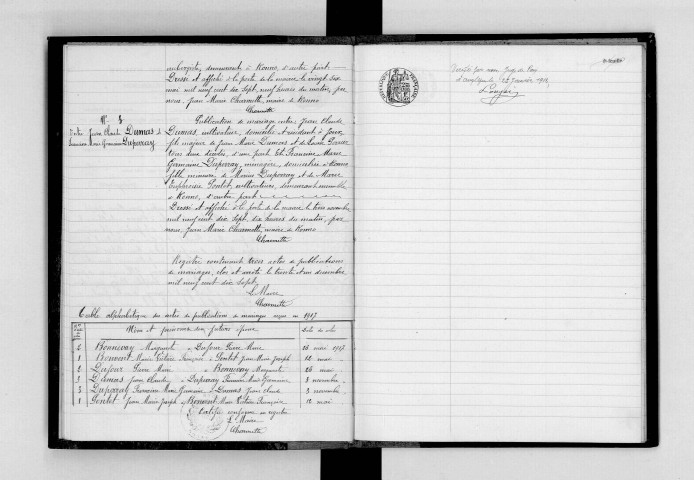 aubergiste, demeurant à Ronno, d'autre part
Dressé et affiché à la porte de la mairie le vingt six
mai mil neuf cent dix sept, neuf heures du matin, par
nous Jean Marie Charmette, maire de Ronno
Charmette
N° 3
Entre Jean Claude Dumas et
Francine Marie Germaine Duperray
Publication de mariage entre Jean Claude
Dumas, cultivateur, domicilié et résidant à Joux,
fils majeur de Jean Marie Dumas et de
tous deux décédés, d'une part. Et Francine Marie
Germaine Duperray, ménagère, domiciliée à Ronno
fille mineure de Marius Duperray et de Marie
Euphrosie Pontet, cultivateurs, demeurant ensemble
à Ronno, d'autre part
Dressé et affiché à la porte de la mairie le trois novembre
mil neuf cent dix sept, dix heures du matin, par
nous Jean Marie Charmette, maire de Ronno
Charmette
Registre contenant trois actes de publications
de mariages, clos et arrêté le trente et un décembre
mil neuf cent dix sept.
Le Maire
Charmette
Table alphabétique des actes de publications de mariages reçus en 1917
Noms et prénoms des futurs époux
Date de
2 Bonnevay Marguerite et Dufour Pierre Marie 26 mai 1917
1 Marie Victoire Françoise et Pontet Jean Marie Joseph 12 mai
2 Dufour Pierre Marie et Bonnevay Marguerite 26 mai
3 Dumas Jean Claude et Duperray Francine Marie Germaine 3 novembre
3 Duperray Francine Marie Germaine et Dumas Jean Claude 3 novembre
1 Pontet Jean Marie Joseph et Marie Victoire Françoise 12 mai
Certifié conforme au registre
Le Maire
Charmette
Vérifié par nous Juge de Paix
d'Amplepuis, 22 Janvier 1918